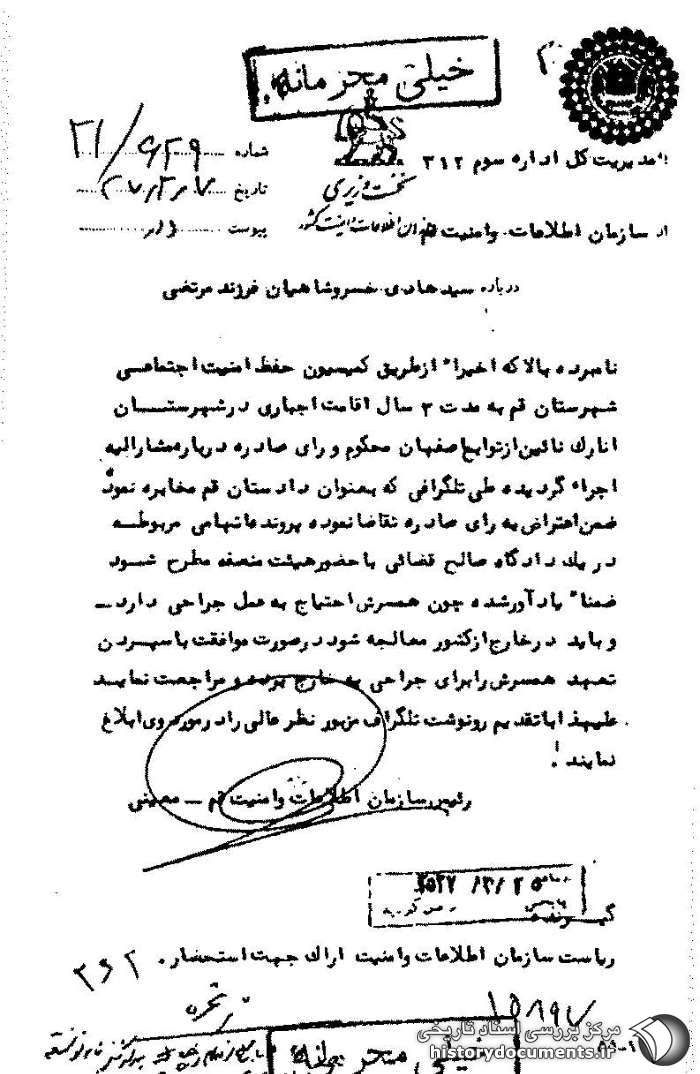 خیلی محرمانه
بمدیریت کل اداره سوم ۳۱۲
شماره ۲۱/۶۲۹
نخست وزیری
تاریخ
سازمان اطلاعات و امنیت کشور
از سازمان اطلاعات و امنیت قم
پیوست دارد
درباره سیدهادی خسروشاهیان فرزند مرتضی
نامبرده بالا که اخیراً ازطریق کمیسیون حفظ امنیت اجتماعی
شهرستان قم به مدت ۳ سال اقامت اجباری درشهرستان
انارک نائین ازتوابع اصفهان محکوم و رای صادره درباره مشارالیه
اجراء گردیده طی تلگرافی که بعنوان دادستان قم مخابره نموده
ضمن اعتراض به رای صادره تقاضا نموده پرونده اتهامی مربوطه
در یک دادگاه صالح قضائی با حضور هیئت منصفه مطرح شود
ضمناً یادآورشده چون همسرش احتیاج به عمل جراحی دارد ـ
و باید درخارج ازکشور معالجه شود درصورت موافقت با سپردن
تعهد همسرش رابرای جراحی به خارج برده و مراجعت نماید
علیهذا باتقدیم رونوشت تلگراف مزبور نظر عالی را درمورد وی ابلاغ
نمایند.
رئیس سازمان اطلاعات و امنیت قم ـ معینی
۲۵۳۷ /۳/ ۲۵
گیرنده
ریاست سازمان اطلاعات و امنیت اراک جهت استحضار.
۳۶۲
۱۵۸۹۷
خیلی محرمانه
مرکز بررسی اسناد تاریخی
historydocuments.ir